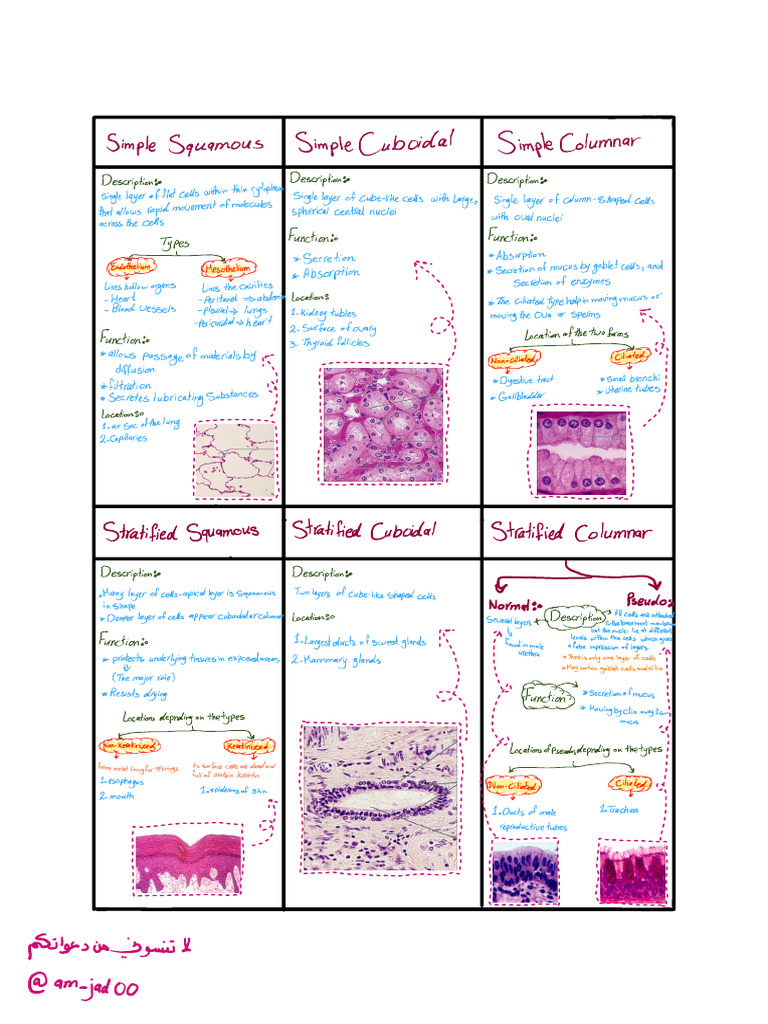 Simple Squamous
Description:-
Single layer of flat cells within thin cytoplasm
that allows rapid movement of molecules
across the cells
Types
Endothelium
Lines hollow organs
- Heart
- Blood vessels
Mesothelium
Lines the cavities
- Peritonal → abdomen
- Plural → lungs
- Pericardial → heart
Function:-
* allows passage of materials by
diffusion
* filtration
* Secretes lubricating Substances
Location:
1. air sac of the lung
2. Capillaries
Simple Cuboidal
Description:-
Single layer of cube-like cells with large,
spherical central nuclei
Function:-
* Secretion
* Absorption
Location:
1. Kidney tubles
2. Surface of ovary
3. Thyroid follicles
Simple Columnar
Description:-
Single layer of column-shaped cells
with oval nuclei
Function:-
* Absorption
* Secretion of mucus by goblet cells, and
Secretion of enzymes
* The ciliated type help in moving mucus or
moving the Ova or sperms
Location of the two forms
Non-ciliated
* Digestive tract
* Gallbladder
Ciliated
* Small bronchi
* Uterine tubes
Stratified Squamous
Description:-
* Many layer of cells-apical layer is squamous
in shape
* Deeper layer of cells appear cuboidal or columnar
Function:-
* protects underlying tissues in exposed areas
(The major role)
* Resists drying
Locations depnding on the types
Non-Keratinized
moist lining for
1. esophagus
2. mouth
Keratinized
its surface cells are dead and
full of protein Keratin
1. epidermis of skin
Stratified Cuboidal
Description:-
Two layers of cube-like shaped cells
Location:-
1. Largest ducts of sweat glands
2. Mammary glands
Stratified Columnar
Normal:-
Pseudo:-
Description
Several layers
found in male
urethra
All cells are attached
to the basement membrane
but the nuclei lie at different
levels within the cells which gives
a false impression of layers.
* There is only one layer of cells
* May contan goblet cells and cilia
Function
* Secretion of mucus
* Moving by cilia
mucus
Locations of Pseudo, depending on the types
Non-Ciliated
1. Ducts of male
reproductive tubes
Ciliated
1. Trachea
لا تنسوني من دعواتكم
@am_jad00